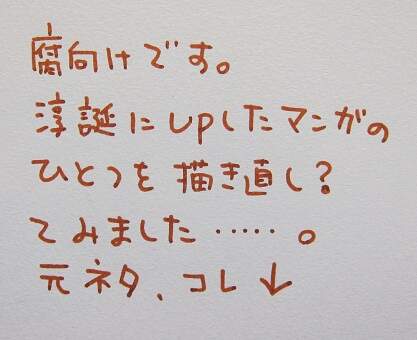 腐向けです。
淳誕にupしたマンガの
ひとつを描き直し?
てみました……。
元ネタ、コレ↓